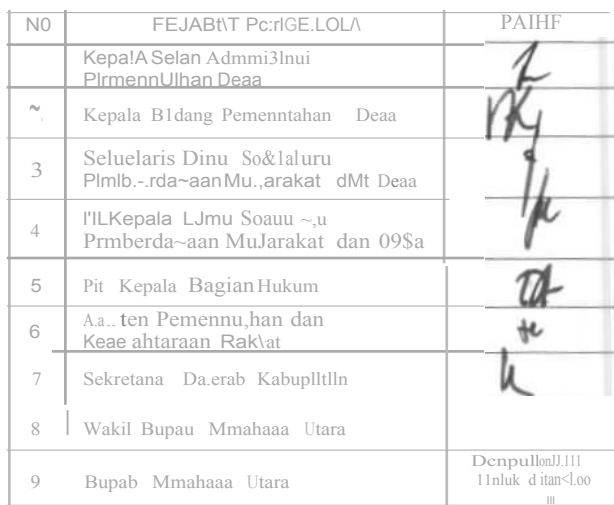 N0 FEJABt\T Pc:rlGE.LOL/\ PAIHF
Kepa!A Selan Admmi3lnui
PlrmennUlhan Deaa
~. Kepala B1dang Pemenntahan Deaa
3 Seluelaris Dinu So&1aluru
Plmlb.-.rda~aanMu.,arakat dMt Deaa
4 l'ILKepala LJmu Soauu ~,u
Prmberda~aan MuJarakat dan 09$a
5 Pit Kepala Bagian Hukum
6 A.a.. ten Pemennu,han dan
Keae ahtaraan Rak\at
7 Sekretana Da.erab Kabuplltlln
8 Wakil Bupau Mmahaaa Utara
9 Bupab Mmahaaa Utara
DcnpullonJJ.111
11nluk d itan<l.oo
III